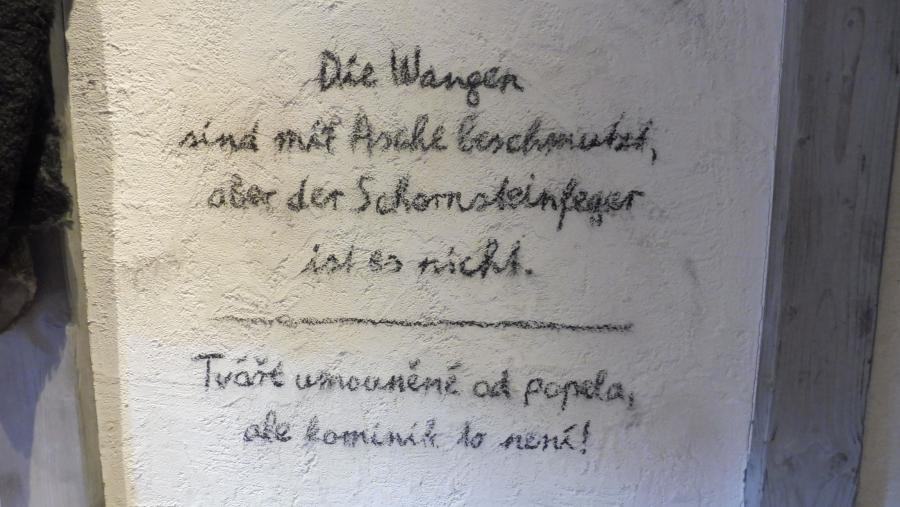 Die Wangen
sind mit Asche beschmutzt,
aber der Schornsteinfeger
ist es nicht.
Tváře umouněné od popela,
ale kominík to není!